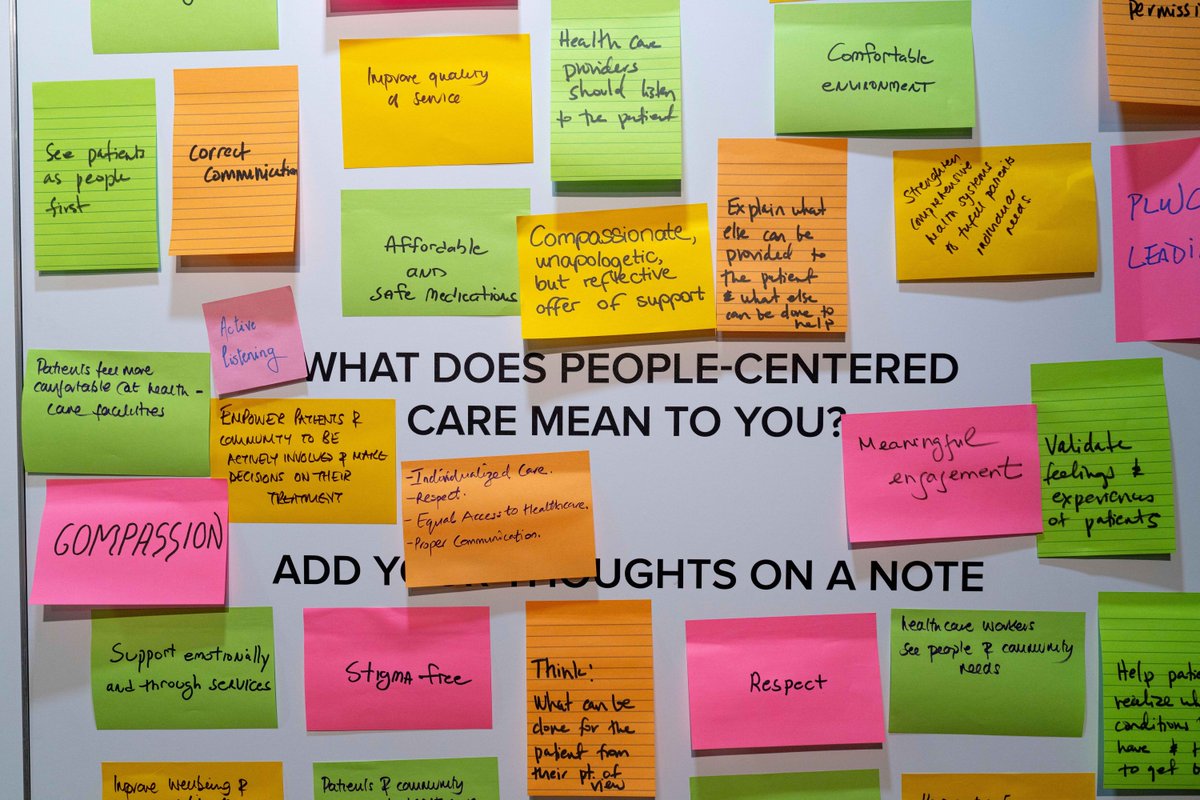 Permissi
Improve quality
of service
Health care
providers
should listen
to the patient
Comfortable
ENVIRONMENT
See patients
as people
first
Correct
Communication
Affordable
AND
Safe Medications
Compassionate,
unapologetic,
but reflective
offer of support
Explain what
else can be
provided to
the patient
& what else
can be done to
help
Strengthen
comprehensive
health systems
to fulfil patients
individual
needs
PLWC
LEADI
Active
listening
WHAT DOES PEOPLE-CENTERED
CARE MEAN TO YOU?
Patients feel more
comfortable (at health-
care facilities
EMPOWER PATIENTS &
COMMUNITY TO BE
ACTIVELY INVOLVED & MAKE
DECISIONS ON THEIR
TREATMENT
- Individualized Care.
- Respect.
- Equal Access to Healthcare.
- Proper Communication.
Meaningful
engagement
Validate
feelings &
experiences
of patients
COMPASSION
ADD YOUR THOUGHTS ON A NOTE
Support emotionally
and through services
Stigma-free
Think!
What can be
done for the
patient from
their pt. of
view
Respect
healthcare workers
see people & community
needs
Help patie
realize wh
conditions
have & t
to get b
Improve wellbeing &
Patients & community